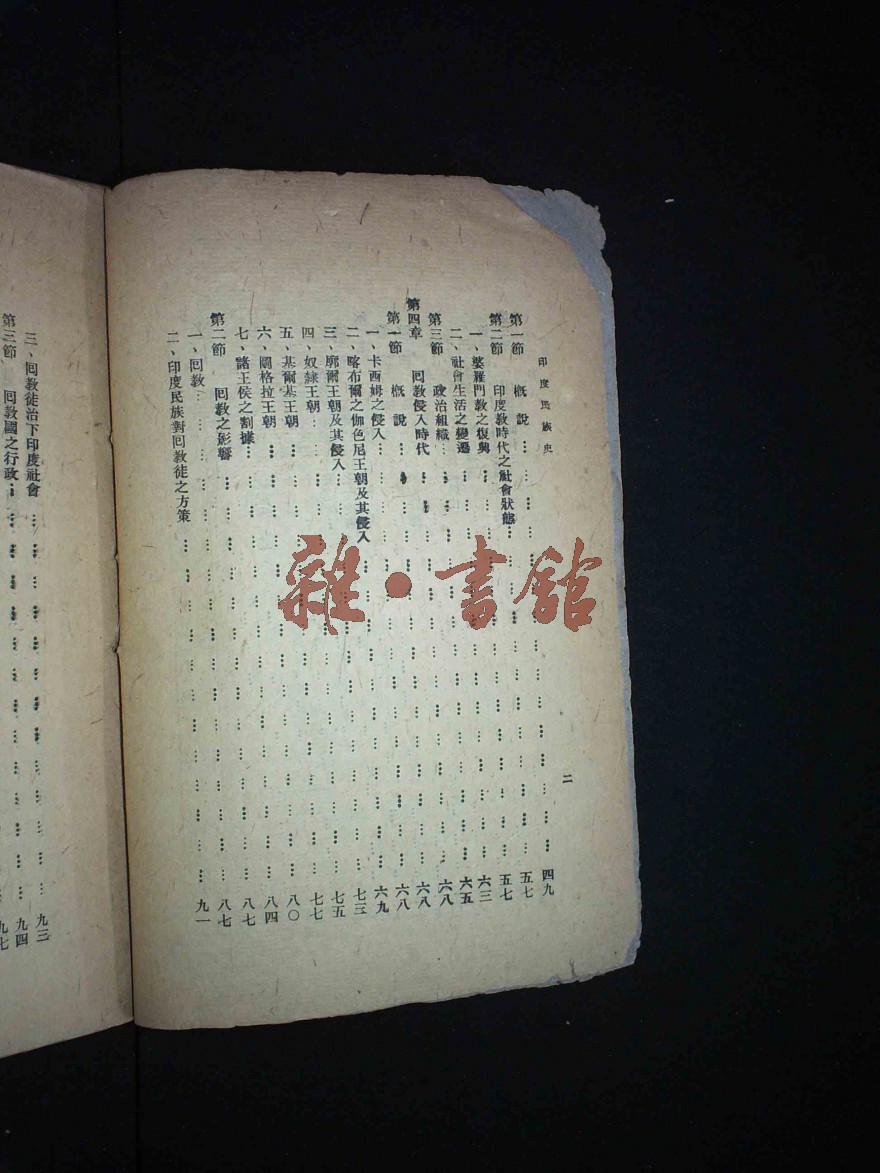 印度民族史 二
第一節 概說………四九
第二節 印度教時代之社會狀態………五七
一、婆羅門教之復興………五七
二、社會生活之變遷………六三
第三節 政治組織………六五
第四章 回教侵入時代………六八
第一節 概說………六八
一、卡西姆之侵入………六八
二、喀布爾之伽色尼王朝及其侵入………六九
三、廓爾王朝及其侵入………七三
四、奴隸王朝………七五
五、基爾基王朝………七七
六、闕格拉王朝………八〇
七、諸王侯之割據………八四
第二節 回教之影響………八七
一、回教………八七
二、印度民族對回教徒之方策………九一
三、回教徒治下印度社會………九三
第三節 回教國之行政………九四
九七
雜·書館